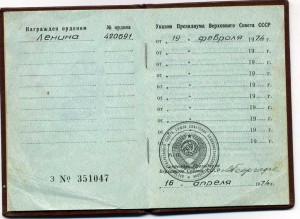 Награжден орденом
№ ордена
Ленина
420691
З № 351047
Указом Президиума Верховного Совета СССР
от 19 февраля 1974 г.
от 19 г.
от 19 г.
от 19 г.
от 19 г.
от 19 г.
от 19 г.
от 19 г.
Президиума
Верховного Совета
16 апреля 1974 г.